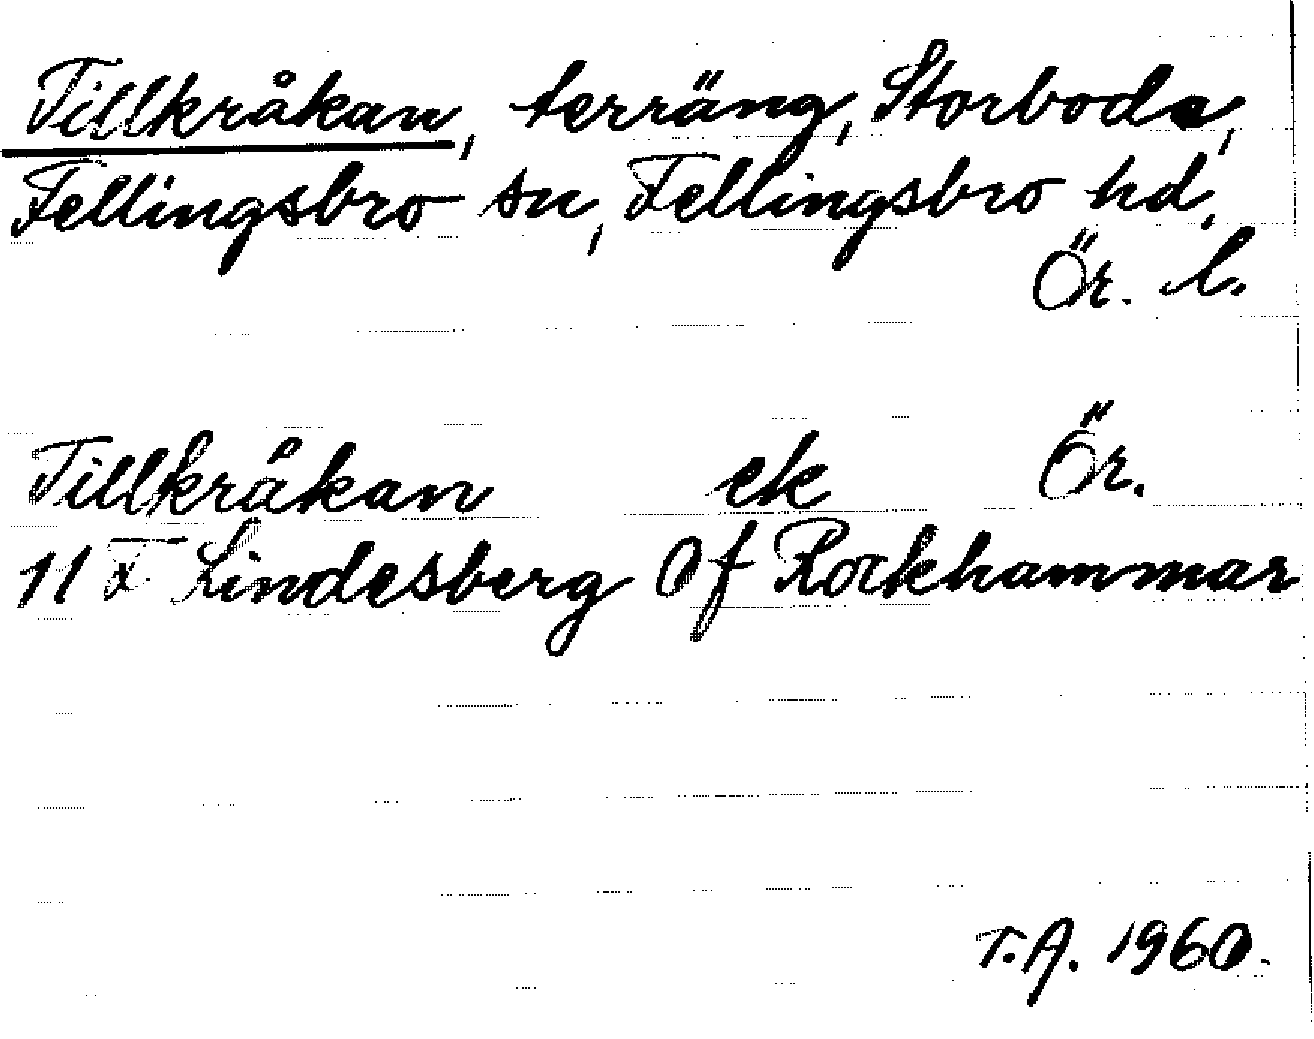 Tillkråkan, terräng, Storboda,
Fellingsbro sn, Fellingsbro hd,
Ör. l.
Tillkråkan ek Ör.
11 F Lindesberg Of Rockhammar
T.A. 1960.